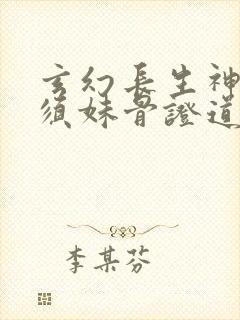 玄幻長生神
須妹骨證道
李某芬